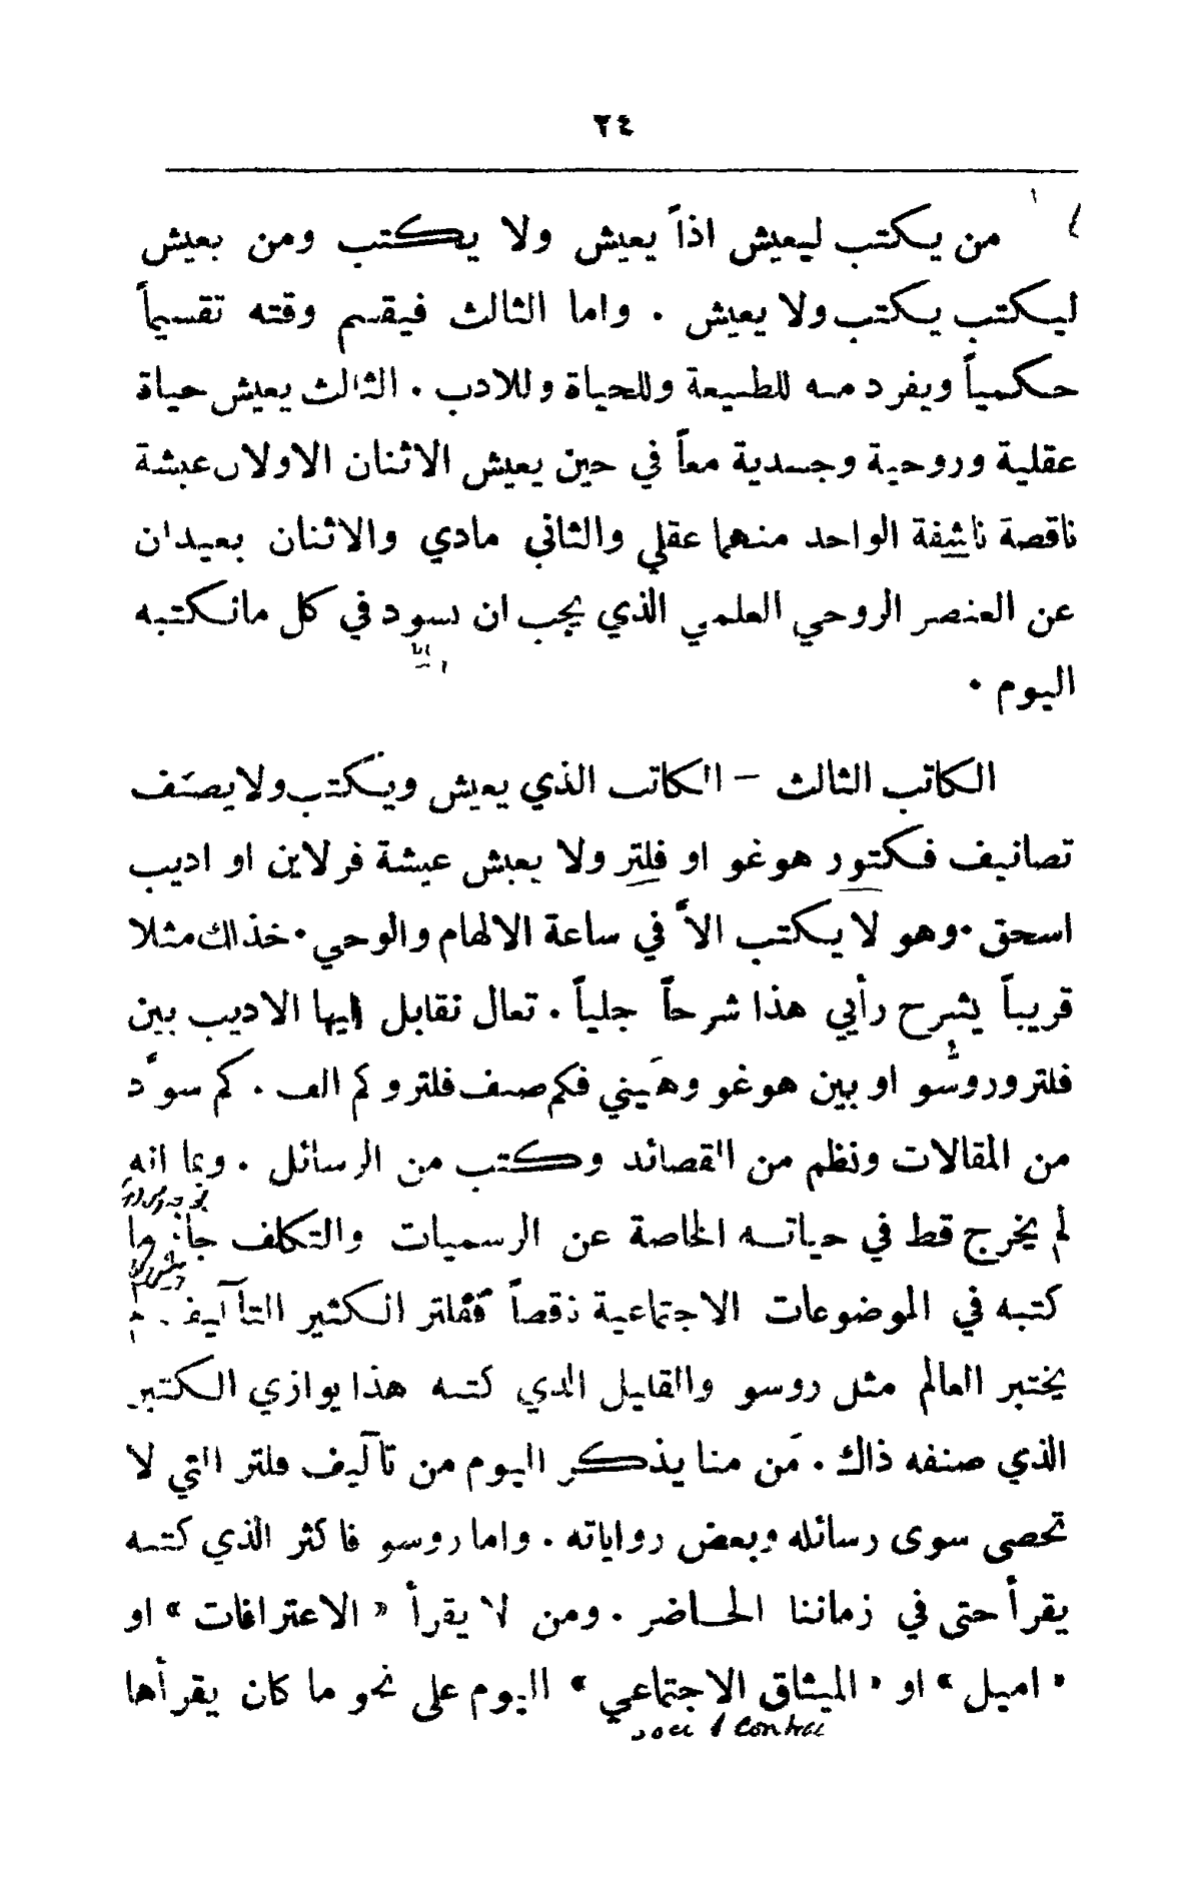 ٢٤
من يكتب ليعيش اذاً يعيش ولا يكتب ومن يعيش
ليكتب يكتب ولا يعيش . واما الثالث فيقسم وقته تقسيماً
حكمياً ويفرد منه للطبيعة وللحياة وللادب . الثالث يعيش حياة
عقلية وروحية وجسدية معاً في حين يعيش الاثنان الاولان عيشة
ناقصة ناشفة الواحد منهما عقلي والثاني مادي والاثنان بعيدان
عن العنصر الروحي العلمي الذي يجب ان يسود في كل مانكتبه
اليوم .
الكاتب الثالث – الكاتب الذي يعيش ويكتب ولا يصنف
تصانيف فكتور هوغو او فلتر ولا يعيش عيشة فرلاين او اديب
اسحق . وهو لا يكتب الاَّ في ساعة الالهام والوحي . خذ لك مثلا
قريباً يشرح رأيي هذا شرحاً جلياً . تعال نقابل ايها الاديب بين
فلتر وروسو او بين هوغو وهَيني فكم صنف فلتر وكم الف . كم سوَّد
من المقالات ونظم من القصائد وكتب من الرسائل . وبما انه
لم يخرج قط في حياته الخاصة عن الرسميات والتكلف جاء ما
كتبه في الموضوعات الاجتماعية ناقصاً ففلتر الكثير التآليف لم
يختبر العالم مثل روسو والقليل الذي كتبه هذا يوازي الكثير
الذي صنفه ذاك . مَن منا يذكر اليوم من تآليف فلتر التي لا
تحصى سوى رسائله وبعض رواياته . واما روسو فاكثر الذي كتبه
يقرأ حتى في زماننا الحاضر . ومن لا يقرأ « الاعترافات » او
« اميل » او « الميثاق الاجتماعي » اليوم على نحو ما كان يقرأها